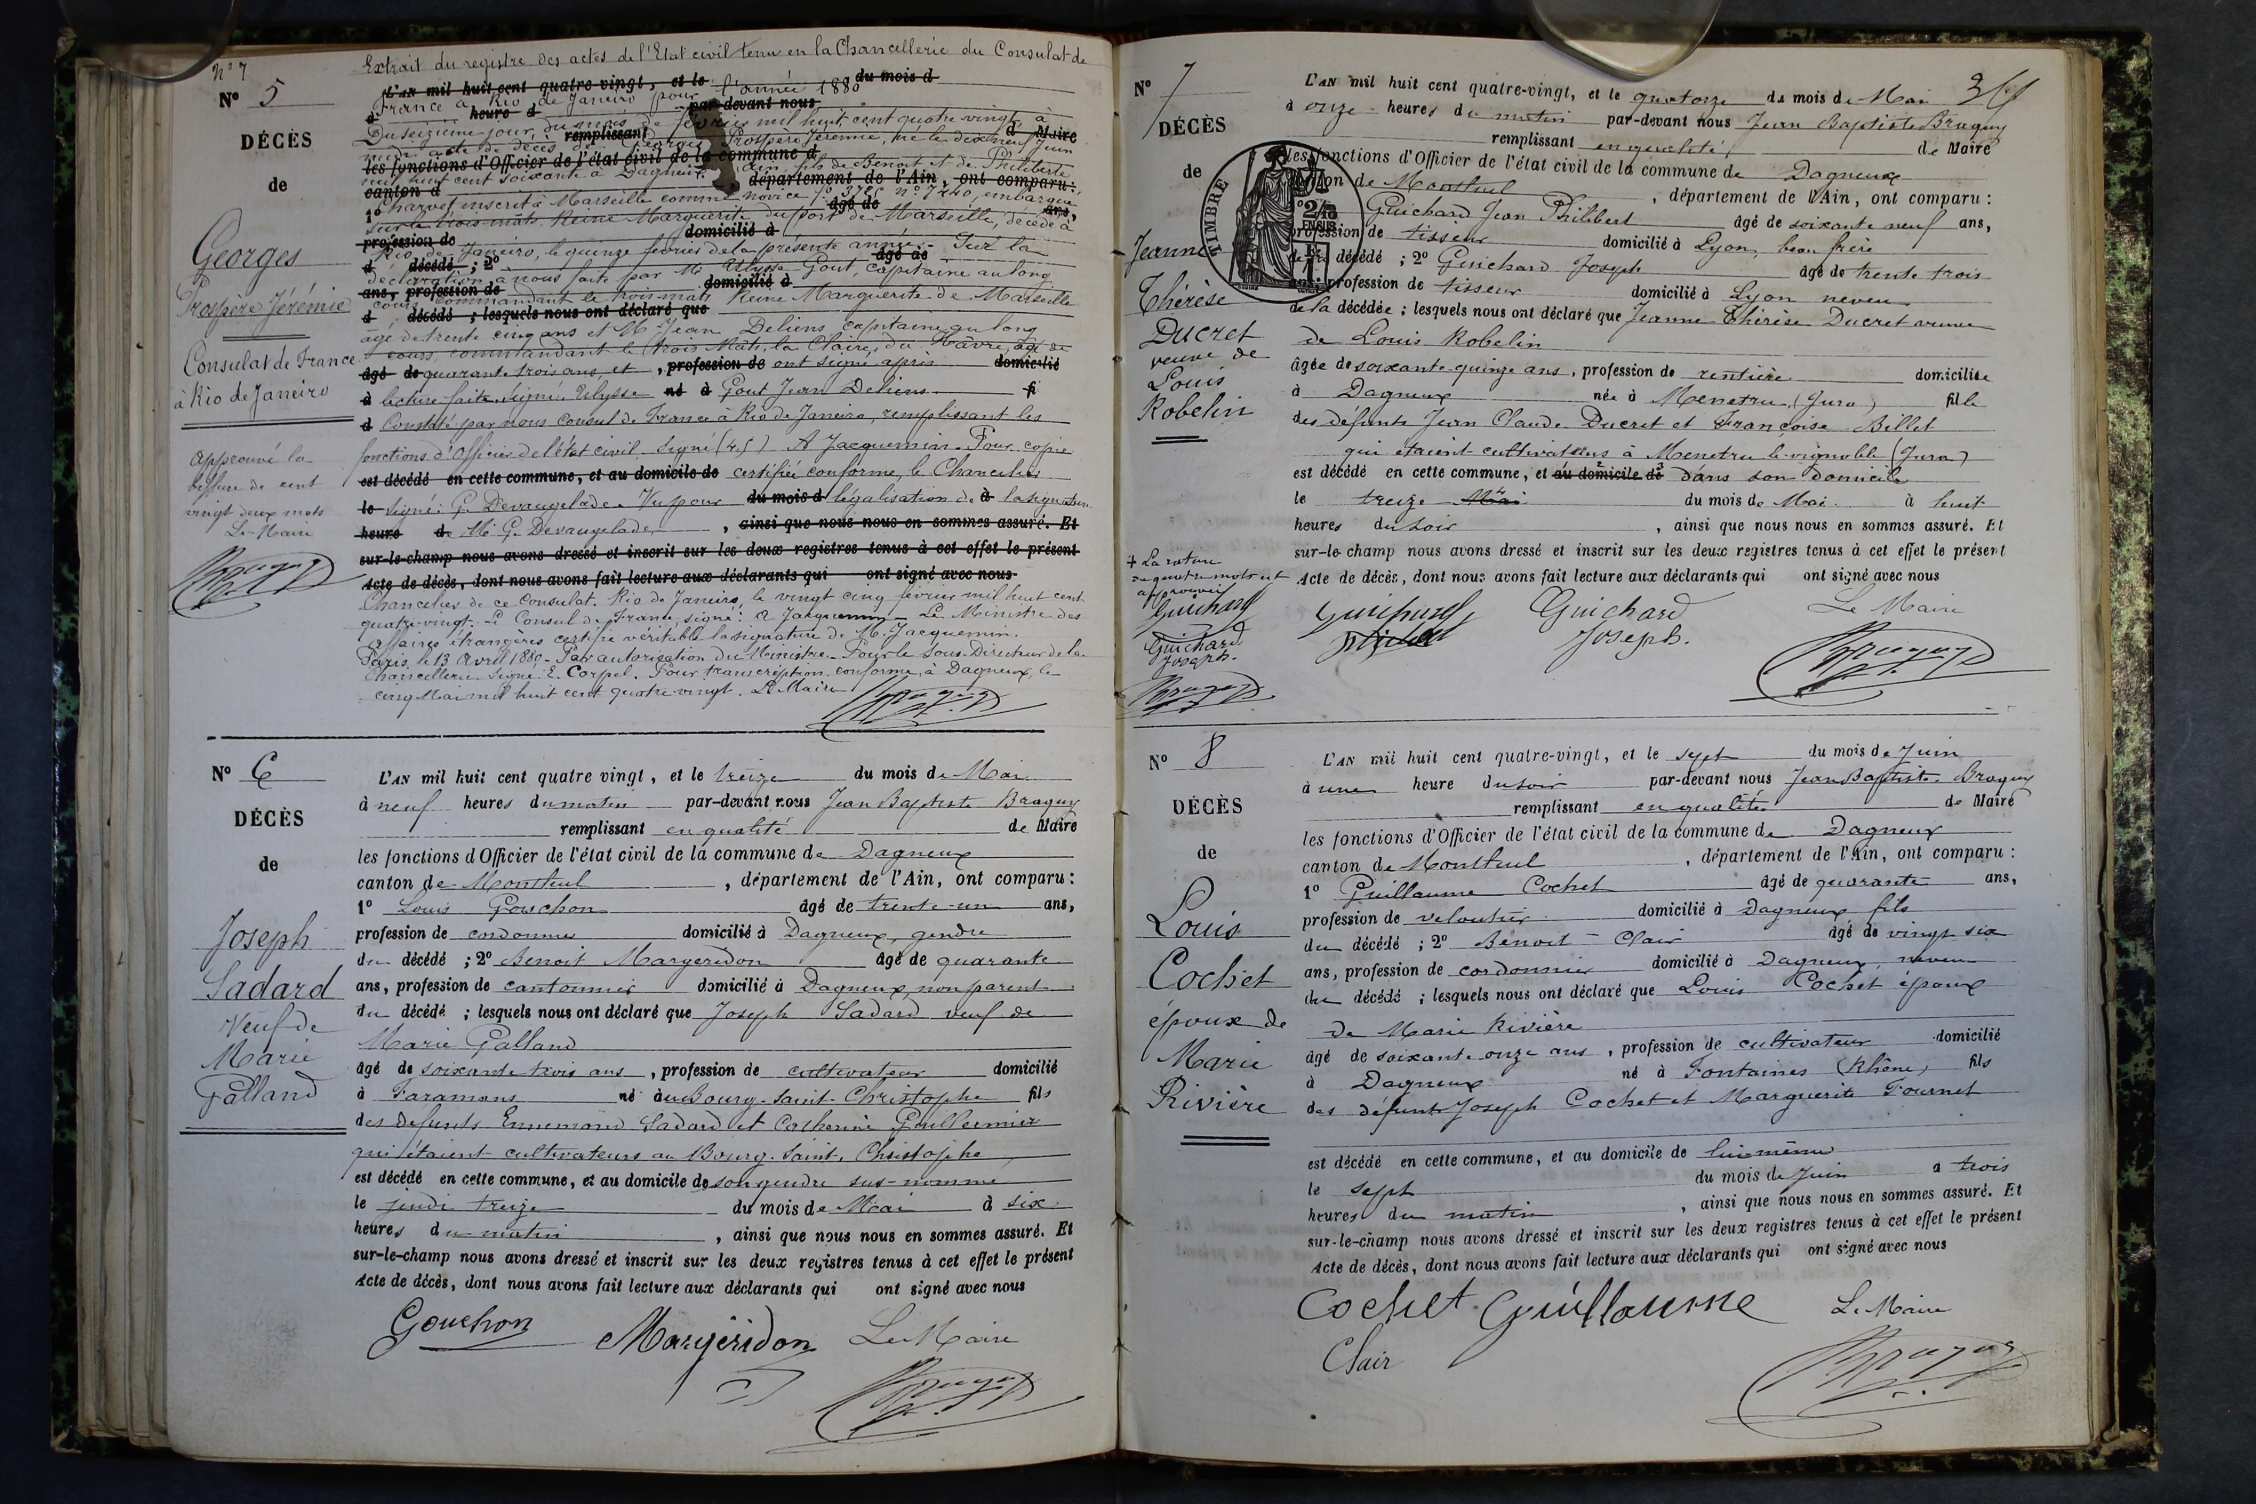 Extrait du registre des actes de l'Etat civil tenu en la Chancellerie du Consulat de
n° 7
L'AN mil huit cent quatre-vingt, et le du mois d
France à Rio de Janeiro pour l'année 1880
N° 5
à heure d par-devant nous
Du seizieme jour du mois de février mil huit cent quatre vingt à
remplissant d Maire
midi acte de décès de Georges Prospère Jérémie, né le dixneuf Juin
DÉCÈS
les fonctions d'Officier de l'état civil de la commune d
mil huit cent soixante à Dagneux fils de Benoit et de Philiberte
de
canton d département de l'Ain, ont comparu:
Charvet inscrit à Marseille comme novice f° 3725 n° 7240, embarqué
1° âgé de ans,
sur le trois mats Reine Marguerite du port de Marseille, décédé à
profession de domicilié à
Rio de Janeiro, le quinze février de la présente année. Sur la
d décédé ; 2° âgé de
déclaration à nous faite par Mr Ulysse Gout, capitaine au long
ans, profession de domicilié à
cours commandant le trois mats Reine Marguerite de Marseille
d décédé ; lesquels nous ont déclaré que
âgé de trente cinq ans et M. Jean Deliens capitaine au long
cours, commandant le trois Mats, la Claire, du Hâvre, âgé de
âgé de quarante trois ans et , profession de ont signé après domicilié
à lecture faite. Signé: Ulysse né à Gout Jean Deliens fi
d Constaté par nous consul de France à Rio de Janeiro, remplissant les
fonctions d'Officier de l'état civil. Signé (L.S) A Jacquemin. Pour copie
est décédé en cette commune, et au domicile de certifiée conforme, le Chancelier
le Signé: G. Devaugelade. Vu pour du mois d légalisation de à la signature
heure de M. G. Devaugelade , ainsi que nous nous en sommes assuré. Et
sur-le-champ nous avons dressé et inscrit sur les deux registres tenus à cet effet le présent
Acte de décès, dont nous avons fait lecture aux déclarants qui ont signé avec nous
Chancelier de ce Consulat. Rio de Janeiro, le vingt cinq février mil huit cent
quatre-vingt. Le Consul de France, signé: A Jacquemin. Le Ministre des
affaires étrangères certifie véritable la signature de M. Jacquemin.
Paris, le 13 Avril 1880. Par autorisation du Ministre. Pour le Sous-Directeur de la
Chancellerie Signé: E. Corpel. Pour transcription conforme, à Dagneux, le
cinq Mai mil huit cent quatre vingt. Le Maire
Braguy
Georges
Prospère Jérémie
Consulat de France
à Rio de Janeiro
Approuvé la
biffure de cent
vingt deux mots
Le Maire
Braguy
N° 6
DÉCÈS
de
Joseph
Sadard
Veuf de
Marie
Galland
L'AN mil huit cent quatre vingt, et le treize du mois de Mai
à neuf heures du matin par-devant nous Jean Baptiste Braguy
remplissant en qualité de Maire
les fonctions d'Officier de l'état civil de la commune de Dagneux
canton de Montluel , département de l'Ain, ont comparu:
1° Louis Gouchon âgé de trente-un ans,
profession de cordonnier domicilié à Dagneux, gendre
du décédé ; 2° Benoit Margeridon âgé de quarante
ans, profession de cantonnier domicilié à Dagneux, non parent
du décédé ; lesquels nous ont déclaré que Joseph Sadard veuf de
Marie Galland
âgé de soixante trois ans , profession de cultivateur domicilié
à Faramans né à au Bourg-Saint-Christophe fils
des défunts Ennemond Sadard et Catherine Guillermier
qui étaient cultivateurs au Bourg-Saint-Christophe
est décédé en cette commune, et au domicile de son gendre sus-nommé
le jeudi treize du mois de Mai à six
heures du matin , ainsi que nous nous en sommes assuré. Et
sur-le-champ nous avons dressé et inscrit sur les deux registres tenus à cet effet le présent
Acte de décès, dont nous avons fait lecture aux déclarants qui ont signé avec nous
Gouchon Margéridon Le Maire
Braguy
N° 7
DÉCÈS
de
Jeanne
Thérèse
Ducret
veuve de
Louis
Robelin
TIMBRE
L'AN mil huit cent quatre-vingt, et le quatorze du mois de Mai
à onze heures du matin par-devant nous Jean Baptiste Braguy
remplissant en qualité de Maire
les fonctions d'Officier de l'état civil de la commune de Dagneux
canton de Montluel , département de l'Ain, ont comparu:
Guichard Jean Philibert âgé de soixante neuf ans,
profession de tisseur domicilié à Lyon, beau frère
de la décédé ; 2° Guichard Joseph âgé de trente trois
ans, profession de tisseur domicilié à Lyon neveu
de la décédée ; lesquels nous ont déclaré que Jeanne Thérèse Ducret veuve
de Louis Robelin
âgée de soixante-quinze ans , profession de rentière domiciliée
à Dagneux née à Menetru (Jura) fille
des défunts Jean Claude Ducret et Françoise Billet
qui étaient cultivateurs à Menetru-le-vignoble (Jura)
est décédé en cette commune, et au domicile de dans son domicile
le treize Mai du mois de Mai à huit
heures du soir , ainsi que nous nous en sommes assuré. Et
sur-le-champ nous avons dressé et inscrit sur les deux registres tenus à cet effet le présent
Acte de décès, dont nous avons fait lecture aux déclarants qui ont signé avec nous
La rature
de quatre mots est
approuvée
Guichard
Guichard
Joseph.
Braguy
Guichard Guichard Le Maire
Joseph.
Braguy
N° 8
DÉCÈS
de
Louis
Cochet
époux de
Marie
Rivière
L'AN mil huit cent quatre-vingt, et le sept du mois de Juin
à une heure du soir par-devant nous Jean Baptiste Braguy
remplissant en qualité de Maire
les fonctions d'Officier de l'état civil de la commune de Dagneux
canton de Montluel , département de l'Ain, ont comparu:
1° Guillaume Cochet âgé de quarante ans,
profession de veloutier domicilié à Dagneux, fils
du décédé ; 2° Benoit Clair âgé de vingt six
ans, profession de cordonnier domicilié à Dagneux, neveu
du décédé ; lesquels nous ont déclaré que Louis Cochet époux
de Marie Rivière
âgé de soixante onze ans , profession de cultivateur domicilié
à Dagneux né à Fontaines (Rhône) fils
des défunts Joseph Cochet et Marguerite Fournet
est décédé en cette commune, et au domicile de lui-même
le sept du mois de Juin à trois
heures du matin , ainsi que nous nous en sommes assuré. Et
sur-le-champ nous avons dressé et inscrit sur les deux registres tenus à cet effet le présent
Acte de décès, dont nous avons fait lecture aux déclarants qui ont signé avec nous
Cochet Guillaume Le Maire
Clair
Braguy